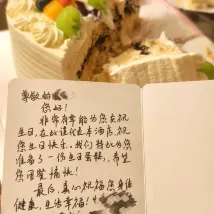 尊敬的
您好！
非常荣幸能为您庆祝
生日，在此谨代表本酒店，祝
您生日快乐。我们特地为您
准备了一份生日蛋糕，希望
您用餐愉快！
最后，衷心祝福您身体
健康，生活幸福！